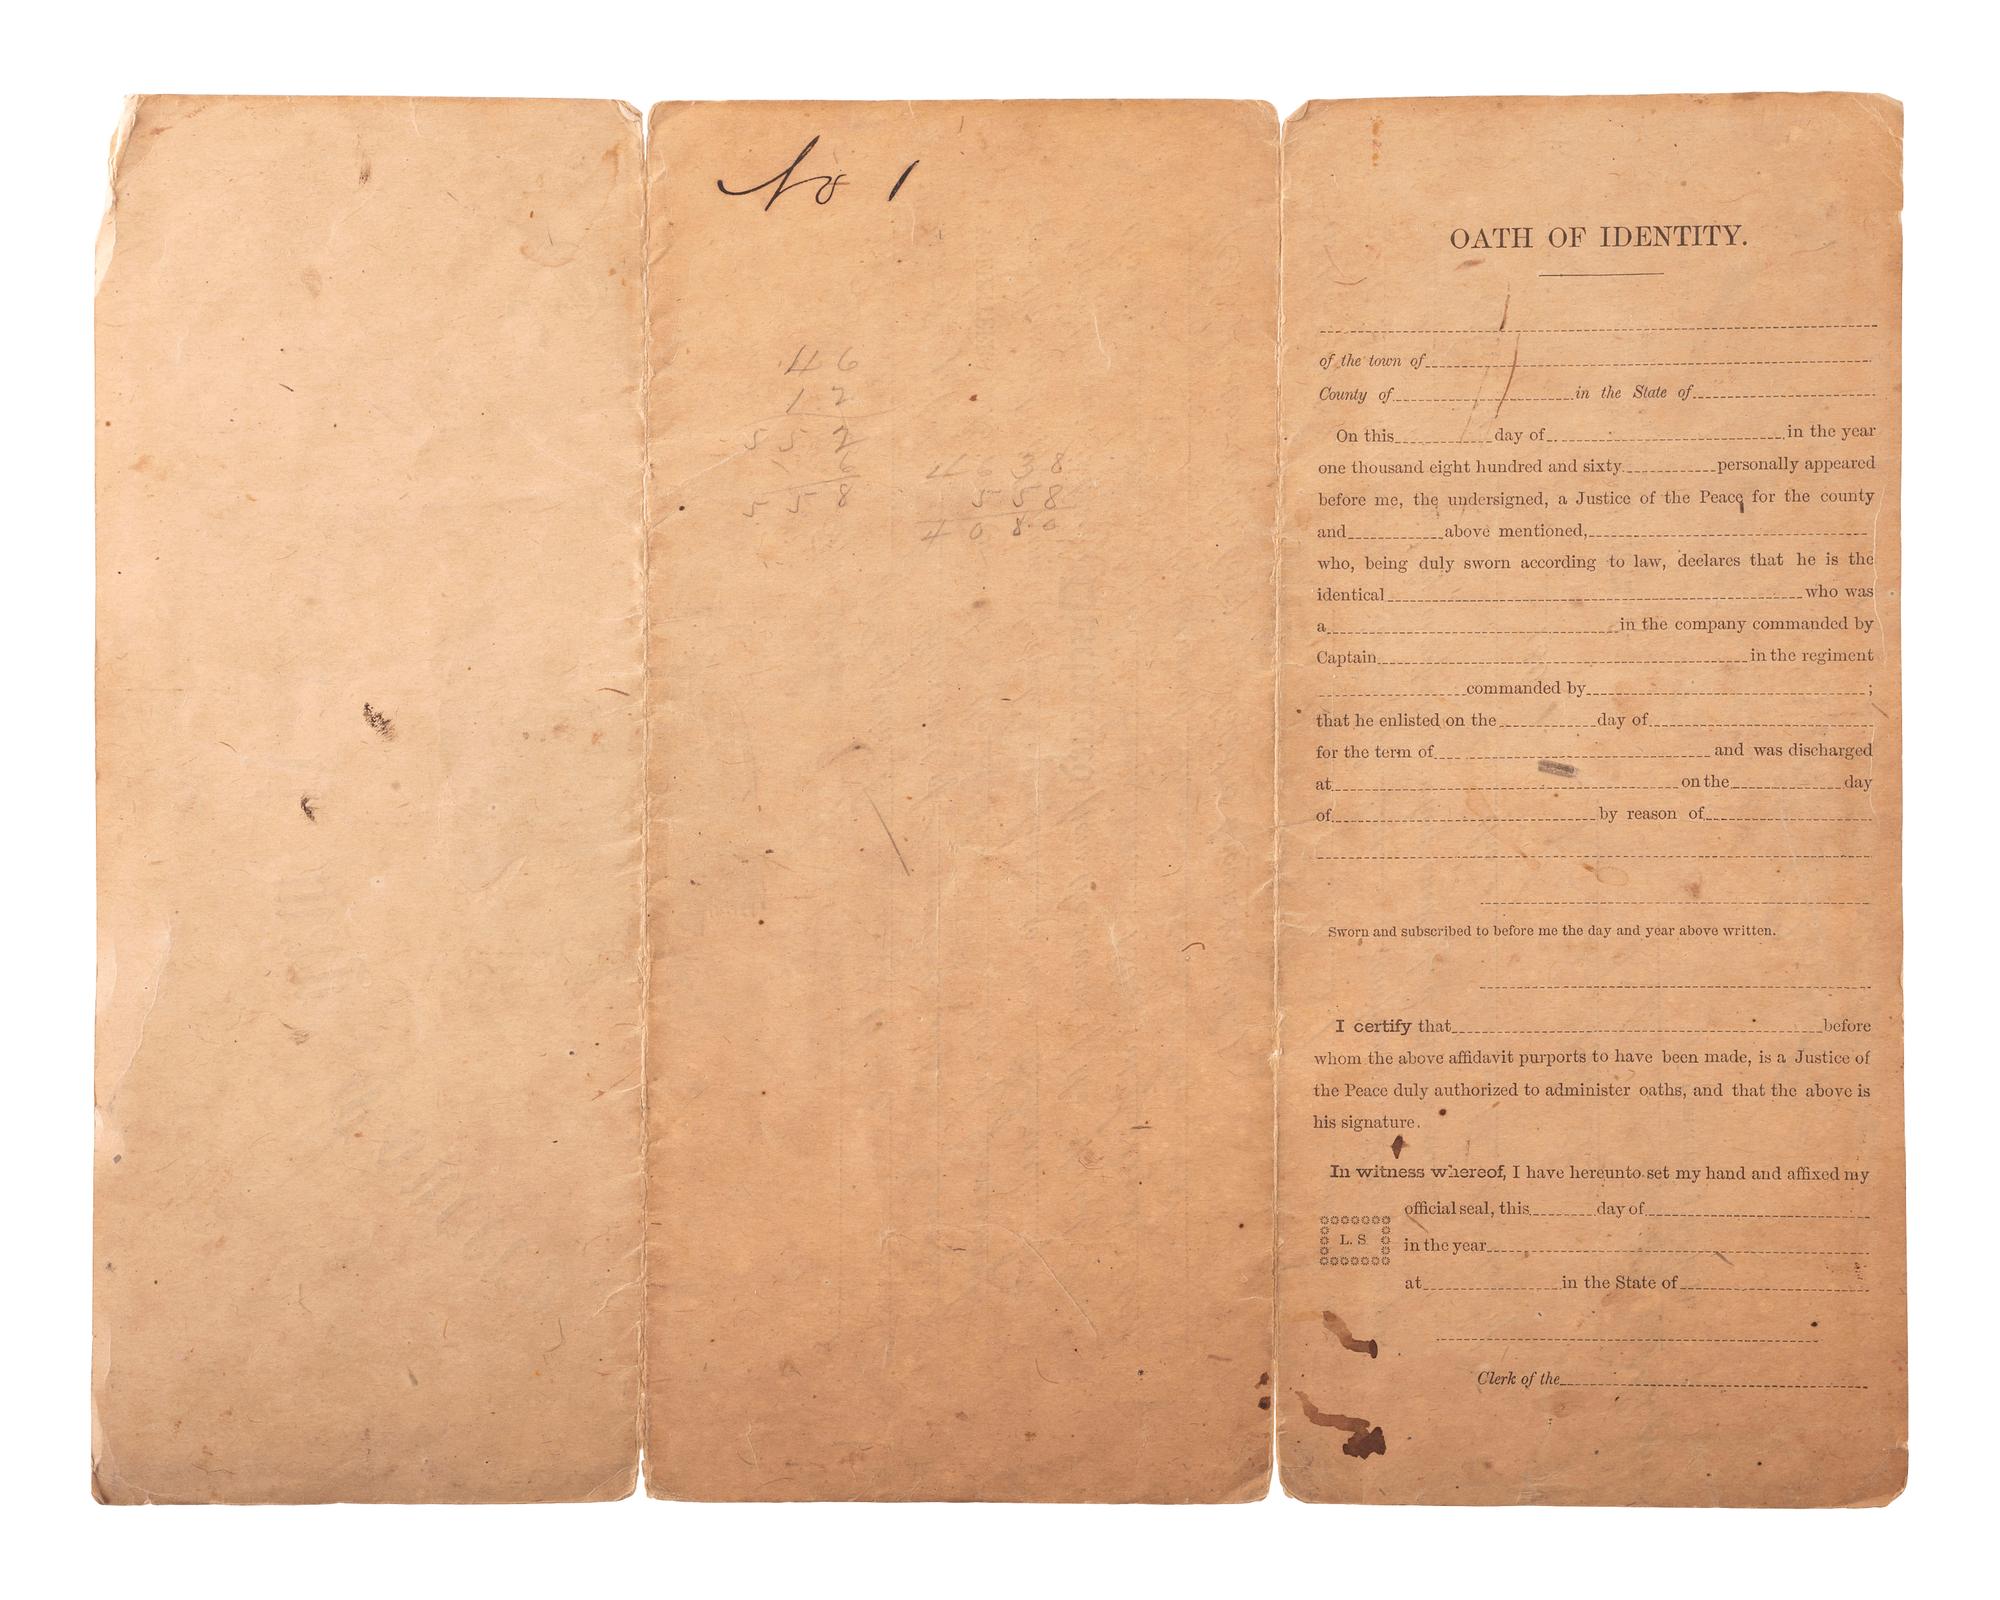 No 1
46
12
552
6
558
4638
558
4080
OATH OF IDENTITY.
of the town of
County of in the State of
On this day of in the year
one thousand eight hundred and sixty personally appeared
before me, the undersigned, a Justice of the Peace for the county
and above mentioned,
who, being duly sworn according to law, declares that he is the
identical who was
a in the company commanded by
Captain in the regiment
commanded by ;
that he enlisted on the day of
for the term of and was discharged
at on the day
of by reason of
Sworn and subscribed to before me the day and year above written.
I certify that before
whom the above affidavit purports to have been made, is a Justice of
the Peace duly authorized to administer oaths, and that the above is
his signature.
In witness whereof, I have hereunto set my hand and affixed my
official seal, this day of
L. S
in the year
at in the State of
Clerk of the